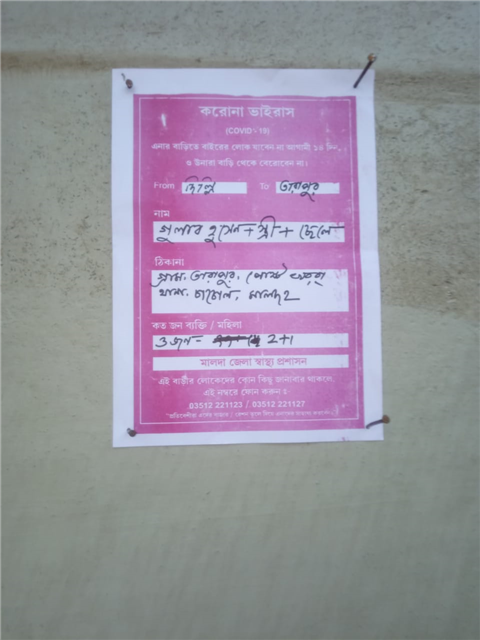 করোনা ভাইরাস
(COVID - 19)
এনার বাড়িতে বাইরের লোক যাবেন না আগামী ১৪ দিন,
ও উনারা বাড়ি থেকে বেরোবেন না।
From দিল্লি To তারাপুর
নাম
গুলাব হুসেন + স্ত্রী + ছেলে
ঠিকানা
গ্রাম. তারাপুর, পোষ্ট
থানা. চাঁচোল, মালদহ
কত জন ব্যক্তি / মহিলা
৩ জন = 2+1
মালদা জেলা স্বাস্থ্য প্রশাসন
এই বাড়ীর লোকেদের কোন কিছু জানাবার থাকলে
এই নম্বরে ফোন করুন ঃ-
03512 221123 / 03512 221127